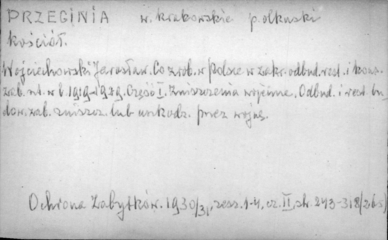 PRZEGINIA w. krakowskie p. olkuski
Kościół.
Wojciechowski Jarosław. Co zrob. w Polsce w zakr. odbud. rest. i kons.
zab. nt. w l. 1919-1929. Część I. Zniszczenia wojenne. Odbud. i rest. bu
dow. zab. zniszcz. lub uszkodz. przez wojnę.
Ochrona Zabytków. 1930/31, zesz. 1-4, cz. II, str. 243-318/